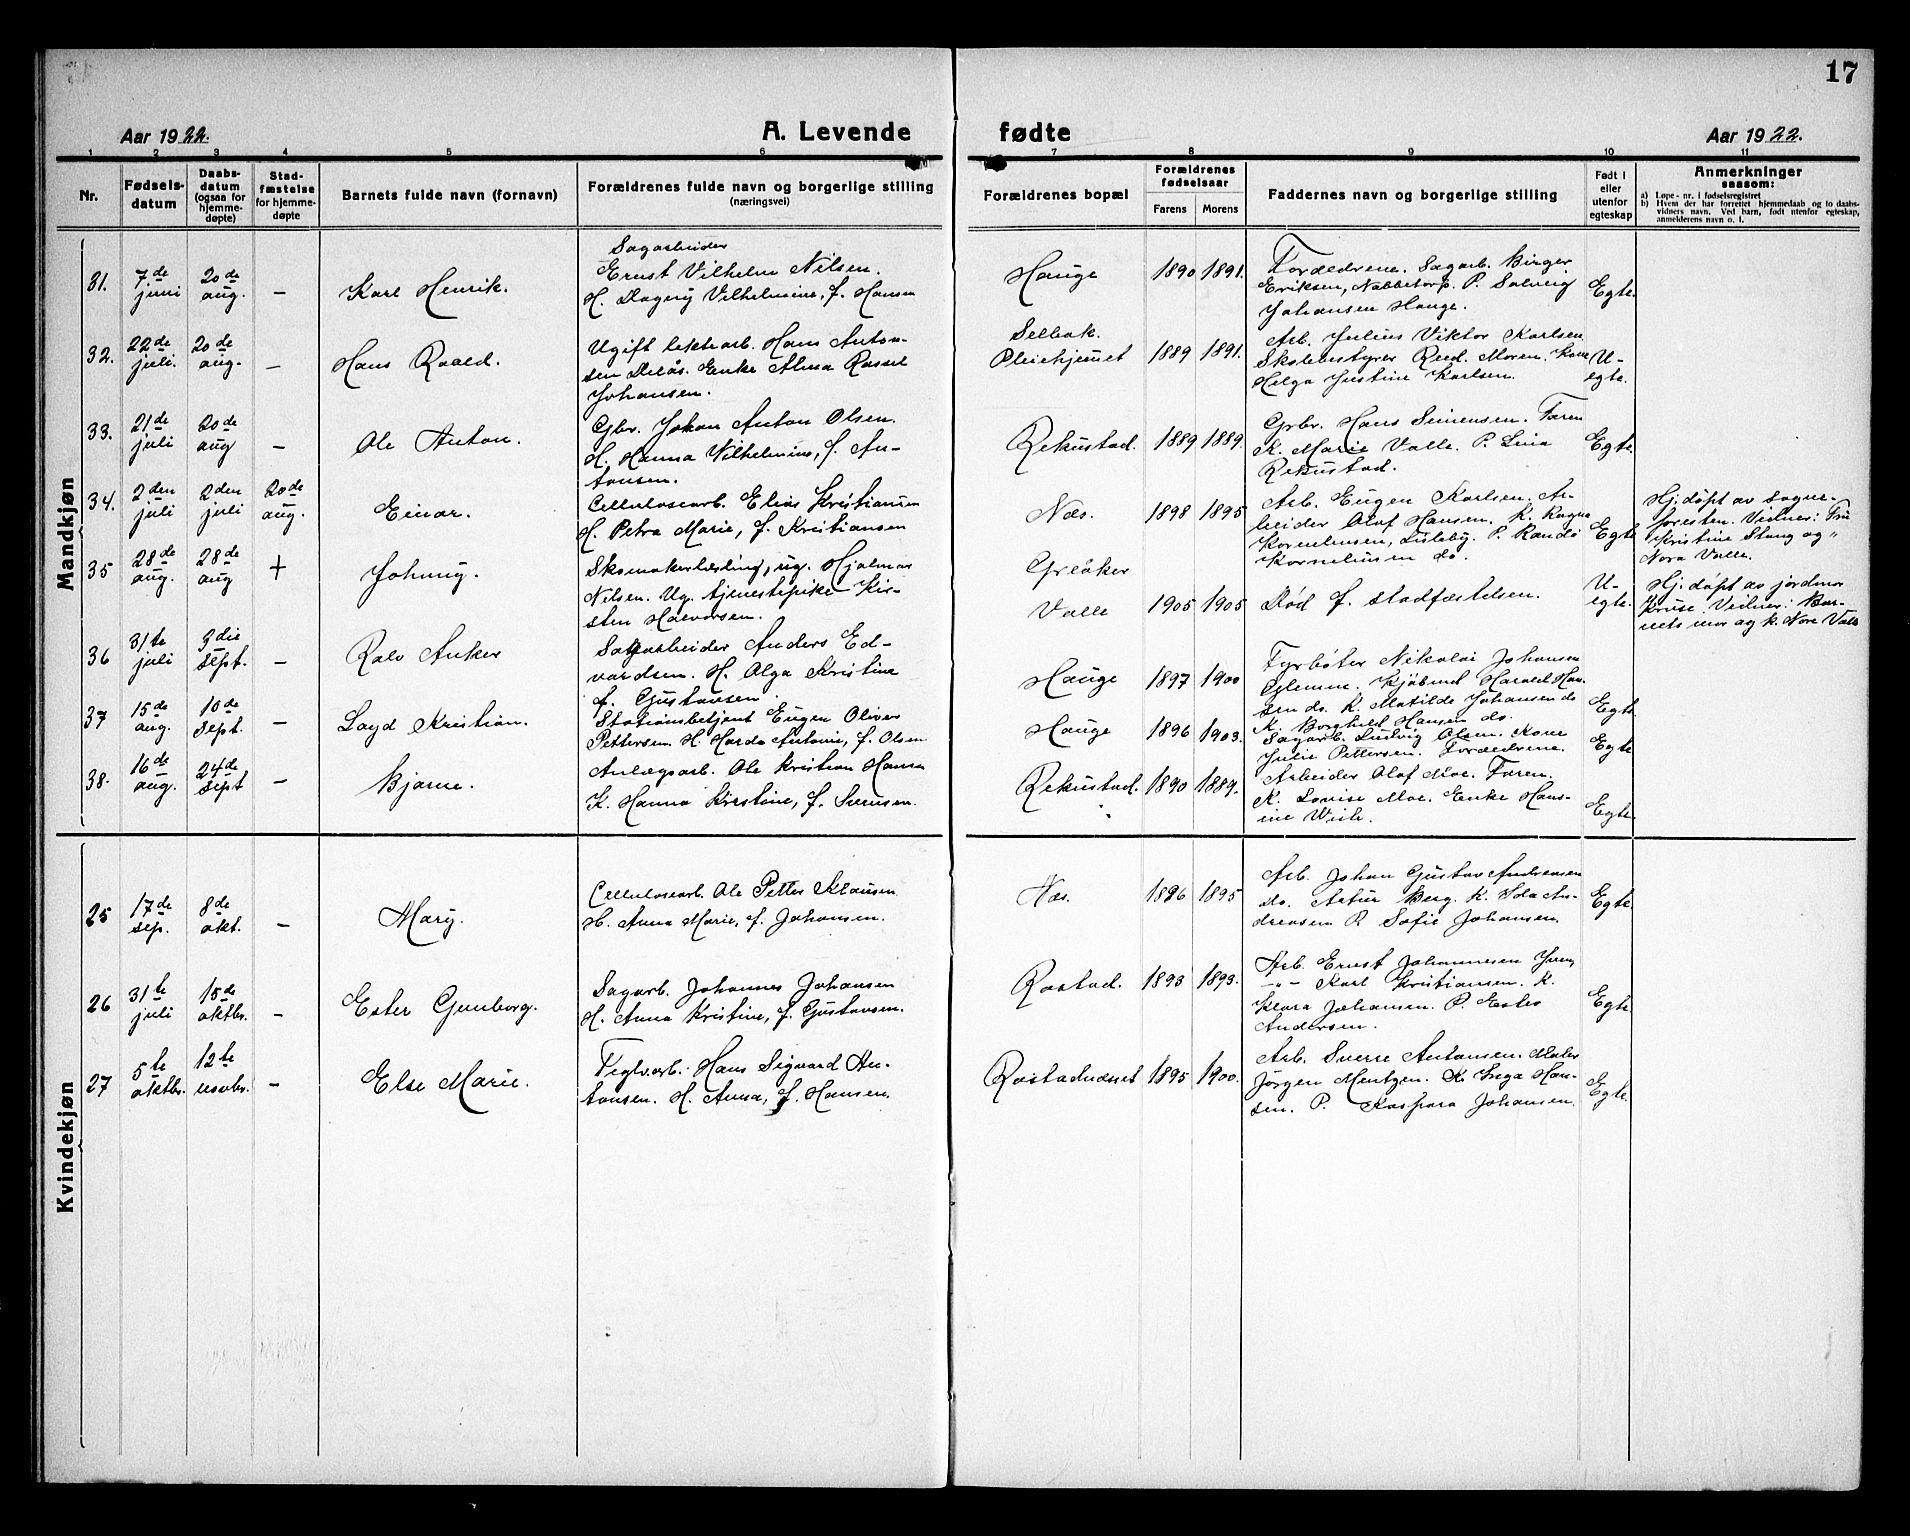 17
Aar 1922.
A. Levende
fødte
Aar 1922.
1 2 3 4 5 6 7 8 9 10 11
Nr.
Fødsels-
datum
Daabs-
datum
(ogsaa for
hjemme-
døpte)
Stad-
fæstelse
for hjemme-
døpte
Barnets fulde navn (fornavn)
Forældrenes fulde navn og borgerlige stilling
(næringsvei)
Forældrenes bopæl
Forældrenes
fødselsaar
Farens Morens
Faddernes navn og borgerlige stilling
Født i
eller
utenfor
egteskap
Anmerkninger
saasom:
a) Løpe-nr. i fødselsregistret
b) Hvem der har forrettet hjemmedaab og to daabs-
vidners navn. Ved barn, født utenfor egteskap,
anmelderens navn o. l.
Mandkjøn
31.
7de
juni
20de
aug.
–
Karl Henrik.
Sagarbeider
Ernst Vilhelm Nilsen.
H. Dagny Vilhelmine, f. Hansen
Hauge
1890 1891.
Forældrene. Sagarb. Birger
Eriksen, Nabbetorp. P. Solveig
Johansen Hauge.
Egte.
32.
22de
juli.
20de
aug.
–
Hans Roald.
Ugift lektrarb. Hans Anton-
sen Delås. Enke Alma Rassel
Johansen.
Selbak.
Pleiehjemet
1889 1891.
Arb. Julius Viktor Karlsen
Skolebestyrer Rud. Moren. Kone
Helga Justine Karlsen.
U-
egte.
33.
21de
juli
20de
aug
–
Ole Anton.
Gbr. Johan Anton Olsen.
H. Hanna Vilhelmine, f. An-
tonsen.
Rekustad.
1889 1889.
Grbr. Hans Simensen. Faren
K. Marie Valle. P. Lina
Rekustad.
Egte.
34.
2den
juli
2den
juli
20de
aug.
Einar.
Cellulosearb. Elias Kristiansen
H. Petra Marie, f. Kristiansen
Næs.
1898 1895
Arb. Eugen Karlsen. Ar-
beider Olaf Hansen. K. Ragna
Korneliussen, Lisleby. P. Randi
Korneliussen do.
Egte
Hj. døpt av sogne-
presten. Vidner: Fru
Kristine Stang og "
Nora Valle.
35
28de
aug.
28de
aug
+
Johnny.
Skomakerlærling, ug. Hjalmar
Nilsen. Ug. tjenestepike Kir-
sten Halvorsen.
Greåker
Valle
1905 1905
Død f. stadfæstelsen.
U-
egte.
Hj. døpt av jordmor
Kruse. Vidner: Bar-
nets mor og K. Nora Valle
36
31te
juli
3die
sept.
–
Rolv Anker
Sagarbeider Anders Ed-
vardsen. H. Olga Kristine
f. Gustavsen.
Hauge
1897 1900
Fyrbøter Nikolai Johansen
Glemme. Kjøbmd Harald Han-
sen do. K. Matilde Johansen do
K. Borghild Hansen do.
Egte.
37
15de
aug.
10de
sept.
–
Loyd Kristian.
Stationsbetjent Eugen Oliver
Pettersen. H. Harda Antonie, f. Olsen
Hauge
1896 1903.
Sagarb. Ludvig Olsen. Kone
Julie Pettersen. Forældrene.
Egte
38.
16de
aug.
24de
sept
–
Bjarne.
Anlægsarb. Ole Kristian Hansen
K. Hanna Kristine, f. Svensen.
Rekustad.
1890 1889.
Arbeider Olaf Moe. Faren.
K. Lovise Moe. Enke Han-
sine Wiik.
Egte.
Kvindekjøn
25
17de
sep.
8de
okt.
–
Mary.
Cellulosearb. Ole Petter Klausen
H. Anna Marie, f. Johansen.
Næs.
1896 1895
Arb. Johan Gustav Andreasen
do. Artur Berg. K. Ida An-
dreasen P. Sofie Johansen.
Egte.
26
31te
juli
15de
oktbr.
–
Ester Gunborg.
Sagarb. Johannes Johansen
H. Anna Kristine, f. Gustavsen.
Rostad.
1893 1893.
Arb. Ernst Johannesen
–"– Karl Kristiansen. K.
Klara Johansen. P. Ester
Andersen.
Egte.
27
5te
oktbr.
12te
novbr.
–
Else Marie.
Teglvarb. Hans Sigvard An-
tonsen. H. Anna, f. Hansen.
Rostadnæsset
1895 1900.
Arb. Sverre Antonsen. Maler
Jørgen Mentzen. K. Inga Han-
sen. P. Kaspara Johansen.
Egte.